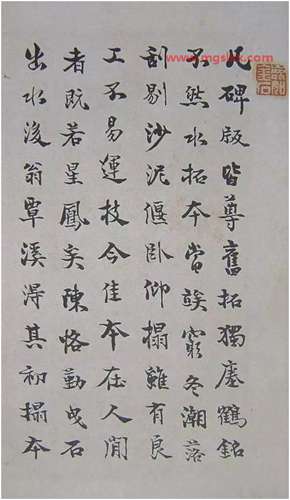 凡碑版皆尊舊拓獨瘞鶴銘
不然水拓本嘗竢窮冬潮落
刮剔沙泥偃臥仰搨雖有良
工不易運技今佳本在人間
者既若星鳳矣陳恪勤曳石
出水後翁覃溪得其初搨本